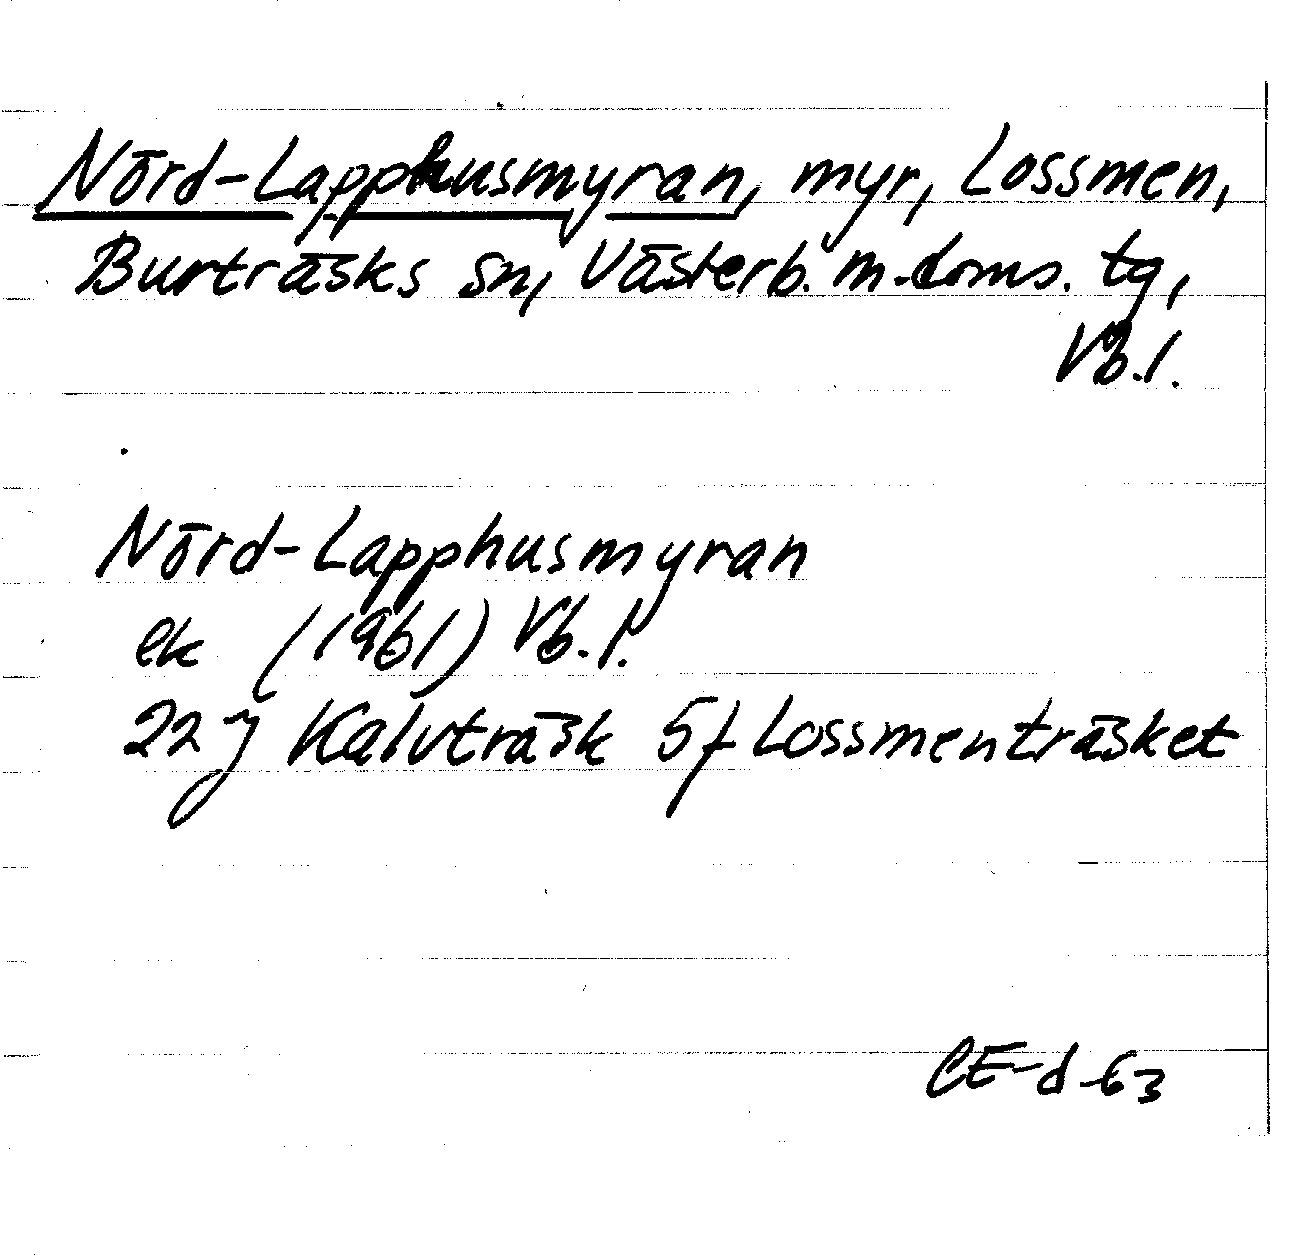 Nörd-Lapphusmyran, myr, Lossmen,
Burträsks sn, Västerb. m. doms. tg,
Vb.l.
Nörd-Lapphusmyran
ek (1961) Vb.l.
22 J Kalvträsk 5f Lossmenträsket
CE-d-63